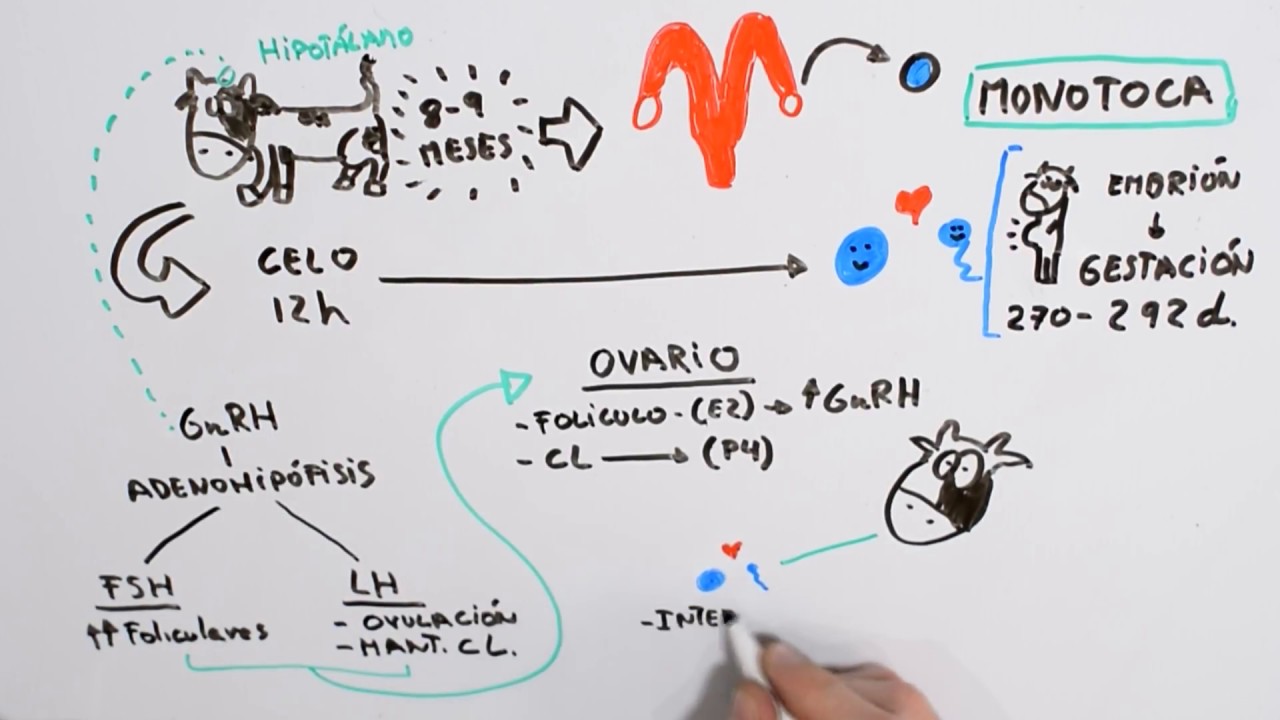 HiPOTÁLAMO
8-9
MESES
MONOTOCA
EMBRIÓN
GESTACIÓN
270-292 d.
CELO
12h
OVARIO
- FOLíCULO - (E2) → ↑GnRH
- CL → (P4)
GnRH
ADENOHiPÓFISIS
FSH
↑↑ Foliculares
LH
- OVULACIÓN
- MANT. CL.
-INTER